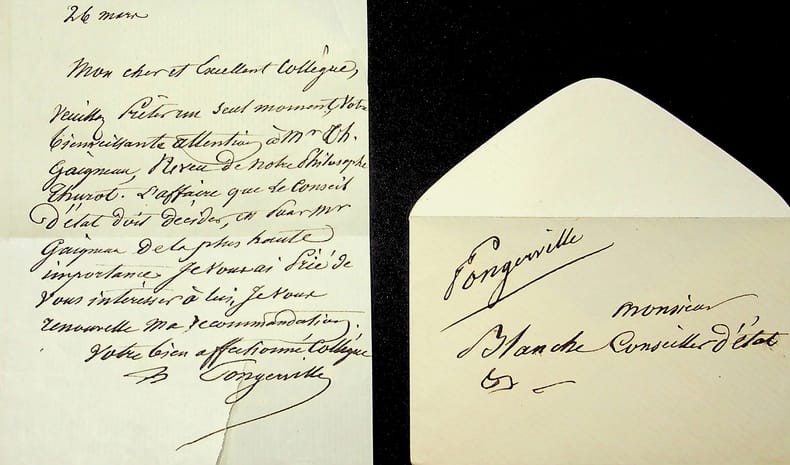 26 mars
Mon cher et Excellent Collègue,
Veuillez Prêter un seul moment, Votre
bienveillante attention à Mr Th.
Gaigneau, Neveu de Notre Philosophe
Thurot. L'affaire que le Conseil
D'état doit décider, est pour Mr
Gaigneau de la plus haute
importance. Je vous ai Prié de
Vous intéresser à lui, Je vous
renouvelle ma recommandation.
Votre bien affectionné Collègue
Pongerville
Pongerville
Monsieur
Blanche Conseiller d'état